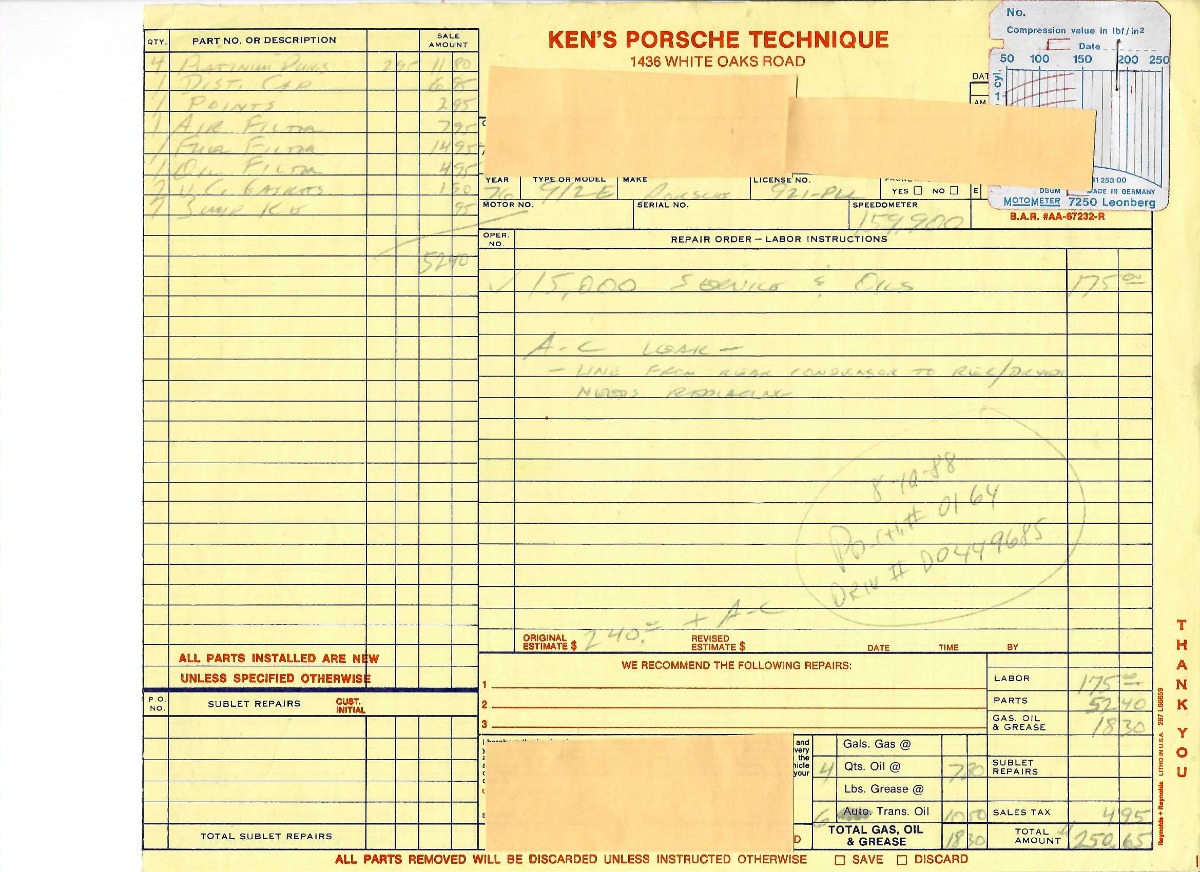 KEN'S PORSCHE TECHNIQUE
1436 WHITE OAKS ROAD
No.
Compression value in lbf/in²
Date
50 100 150 200 250
cyl.
1
DBGM MADE IN GERMANY
MOTOMETER 7250 Leonberg
B.A.R. #AA-67232-R
QTY. PART NO. OR DESCRIPTION SALE AMOUNT
4 PLATINUM PLUGS 295 11 80
1 DIST. CAP 6 85
1 POINTS 2 95
1 AIR FILTER 7 95
1 FUEL FILTER 14 95
1 OIL FILTER 4 95
2 V.C. GASKETS 1 50
1 95
52 40
YEAR TYPE OR MODEL MAKE LICENSE NO.
76 912-E PORSCHE 921-PLL
YES ☐ NO ☐
MOTOR NO. SERIAL NO. SPEEDOMETER
159,900
OPER. NO. REPAIR ORDER – LABOR INSTRUCTIONS
✓ 15,000 SERVICE & OILS 175 00
A-C LEAK –
– LINE FROM REAR CONDENSOR TO REC/DRYER
NEEDS REPLACING
8-10-88
Porth# 0164
DRIV # D0449685
ORIGINAL ESTIMATE $ 240.00 + A-C REVISED ESTIMATE $ DATE TIME BY
ALL PARTS INSTALLED ARE NEW
UNLESS SPECIFIED OTHERWISE
P.O. NO. SUBLET REPAIRS CUST. INITIAL
TOTAL SUBLET REPAIRS
WE RECOMMEND THE FOLLOWING REPAIRS:
1
2
3
LABOR 175 00
PARTS 52 40
GAS. OIL & GREASE 18 30
SUBLET REPAIRS
SALES TAX 4 95
TOTAL AMOUNT 250,65
Gals. Gas @
4 Qts. Oil @ 7 80
Lbs. Grease @
6 Auto. Trans. Oil 10 50
TOTAL GAS, OIL & GREASE 18 30
ALL PARTS REMOVED WILL BE DISCARDED UNLESS INSTRUCTED OTHERWISE ☐ SAVE ☐ DISCARD
THANK YOU
Reynolds + Reynolds LITHO IN U.S.A. 287 L56659